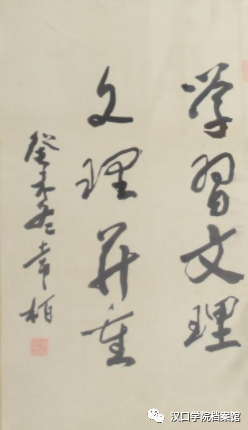 学習文理
文理并重
癸未冬 章柏
汉口学院档案馆